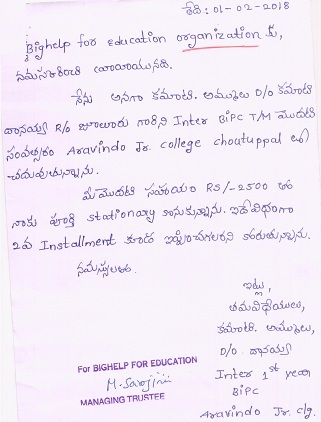 తేది: 01-02-2018
Bighelp for education organization కు,
నమస్కరించి వ్రాయునది.
నేను అనగా కమాటి. అమ్ములు D/o కమాటి
దానయ్య R/o జూలూరు Inter BiPC T/M మొదటి
సంవత్సరం Aravindo Jr. college choutuppal లో
చదువుతున్నాను.
మీ మొదటి సహాయం RS/-2500 తో
నాకు పూర్తి stationary కొనుక్కున్నాను. ఇదేవిధంగా
2వ Installment కూడ ఇప్పించగలరని కోరుతున్నాను.
ఇట్లు,
తమవిధేయులు,
కమాటి. అమ్ములు,
D/o. దానయ్య
Inter 1st year
BiPC
Aravindo Jr. clg.
For BIGHELP FOR EDUCATION
M. Sarojini
MANAGING TRUSTEE